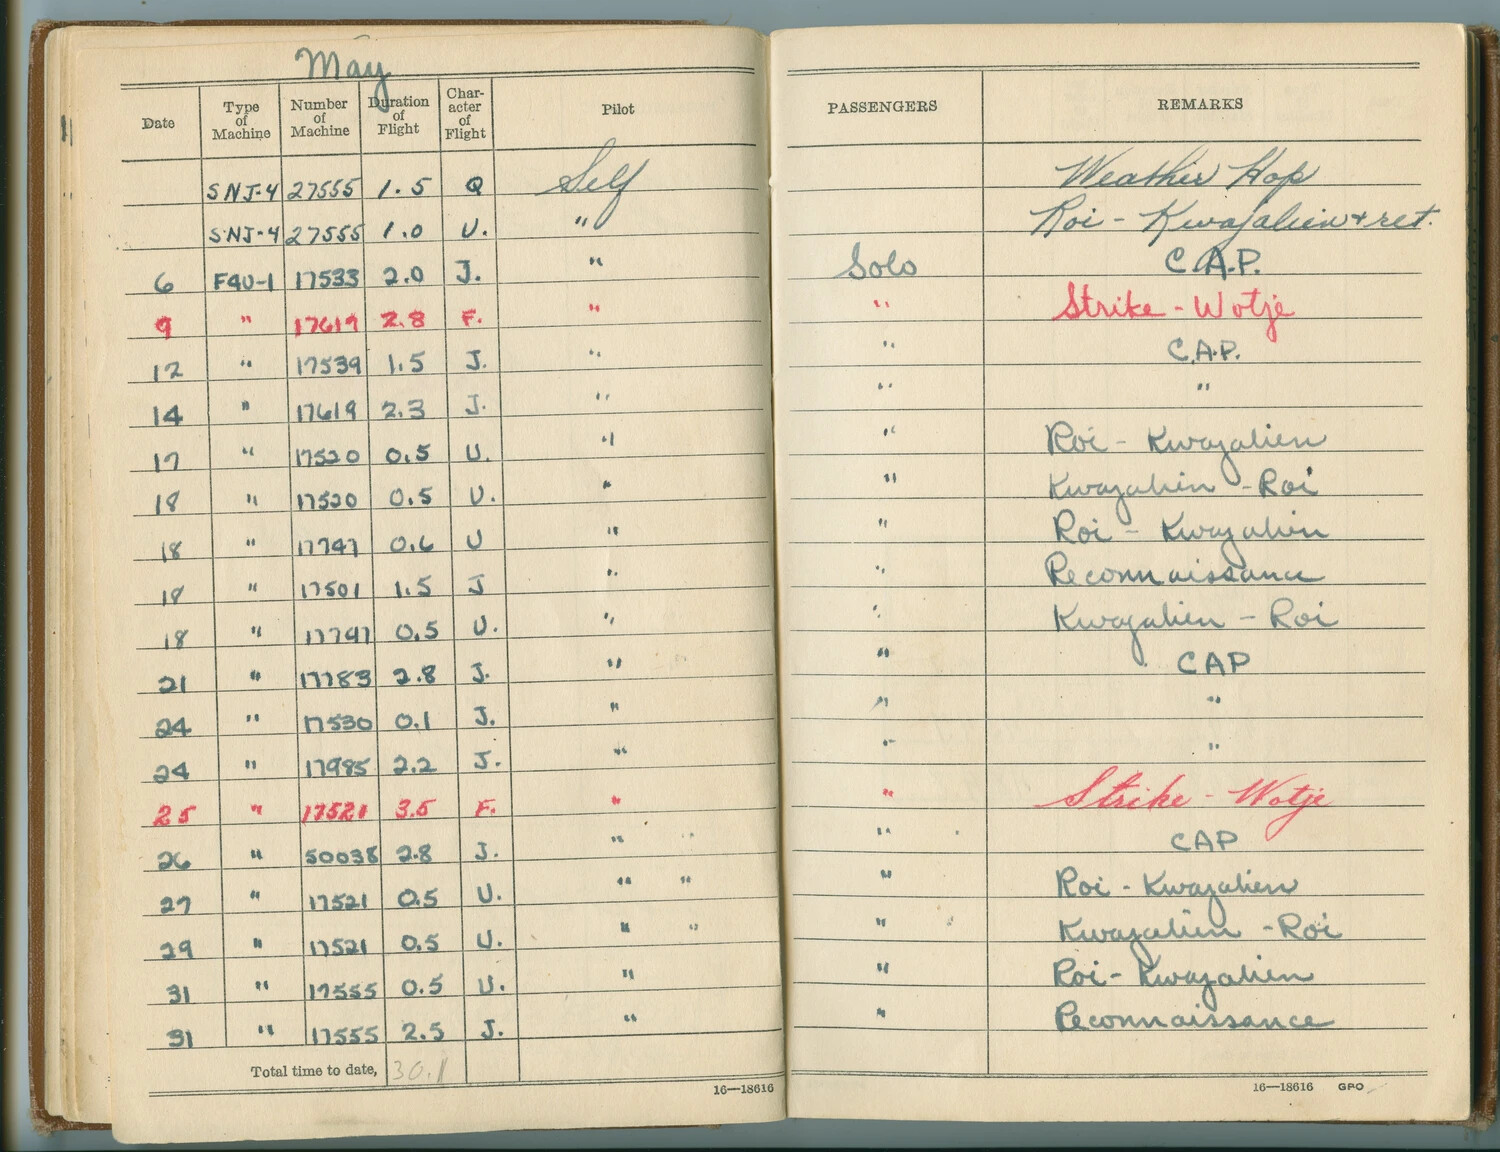 May
Date Type of Machine Number of Machine Duration of Flight Character of Flight Pilot PASSENGERS REMARKS
SNJ-4 27555 1.5 Q Self Weather Hop
SNJ-4 27555 1.0 U. " Roi - Kwajalien + ret.
6 F4U-1 17533 2.0 J. " Solo C.A.P.
9 " 17619 2.8 F. " " Strike - Wotje
12 " 17539 1.5 J. " " C.A.P.
14 " 17619 2.3 J. " " "
17 " 17520 0.5 U. " " Roi - Kwajalien
18 " 17520 0.5 U. " " Kwajalien - Roi
18 " 17747 0.6 U " " Roi - Kwajalien
18 " 17501 1.5 J " " Reconnaissance
18 " 17747 0.5 U. " " Kwajalien - Roi
21 " 17783 2.8 J. " " CAP
24 " 17530 0.1 J. " " "
24 " 17985 2.2 J. " " "
25 " 17521 3.5 F. " " Strike - Wotje
26 " 50038 2.8 J. " " CAP
27 " 17521 0.5 U. " " " Roi - Kwajalien
29 " 17521 0.5 U. " " " Kwajalien - Roi
31 " 17555 0.5 U. " " Roi - Kwajalien
31 " 17555 2.5 J. " " Reconnaissance
Total time to date, 30.1
16—18616 16—18616 GPO